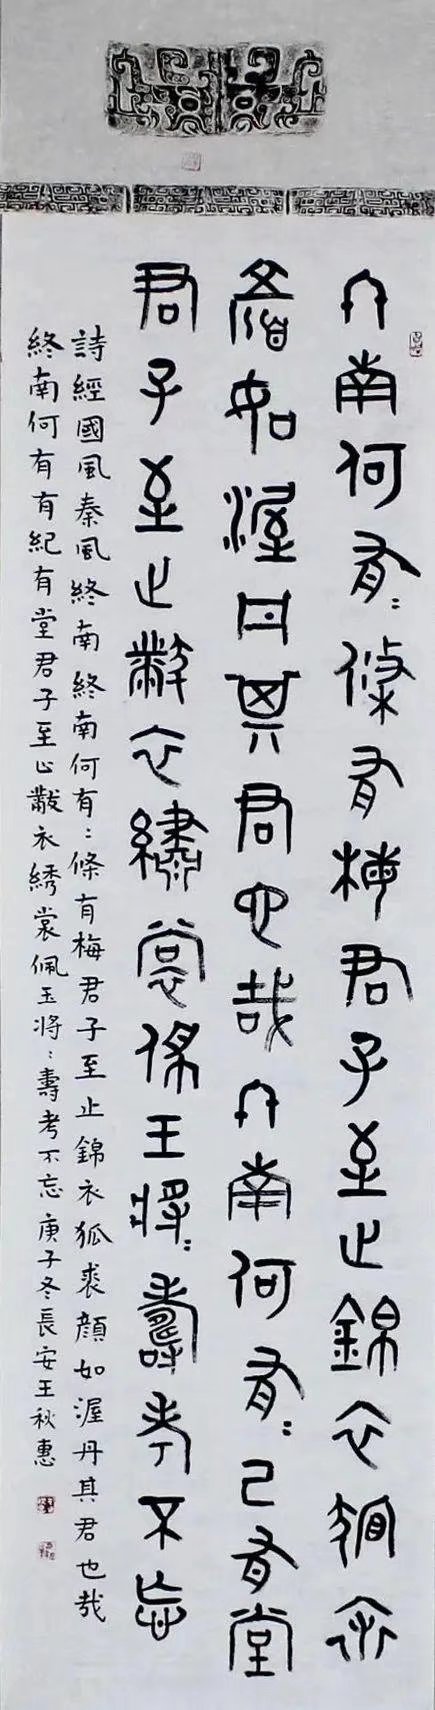 終南何有：條有梅君子至止錦衣狐裘
顏如渥丹其君也哉終南何有：己有堂
君子至止黻衣繡裳佩玉將：壽考不忘
詩經國風秦風終南 終南何有：條有梅君子至止錦衣狐裘顏如渥丹其君也哉
終南何有有紀有堂君子至止黻衣綉裳佩玉将：壽考不忘 庚子冬長安王秋惠